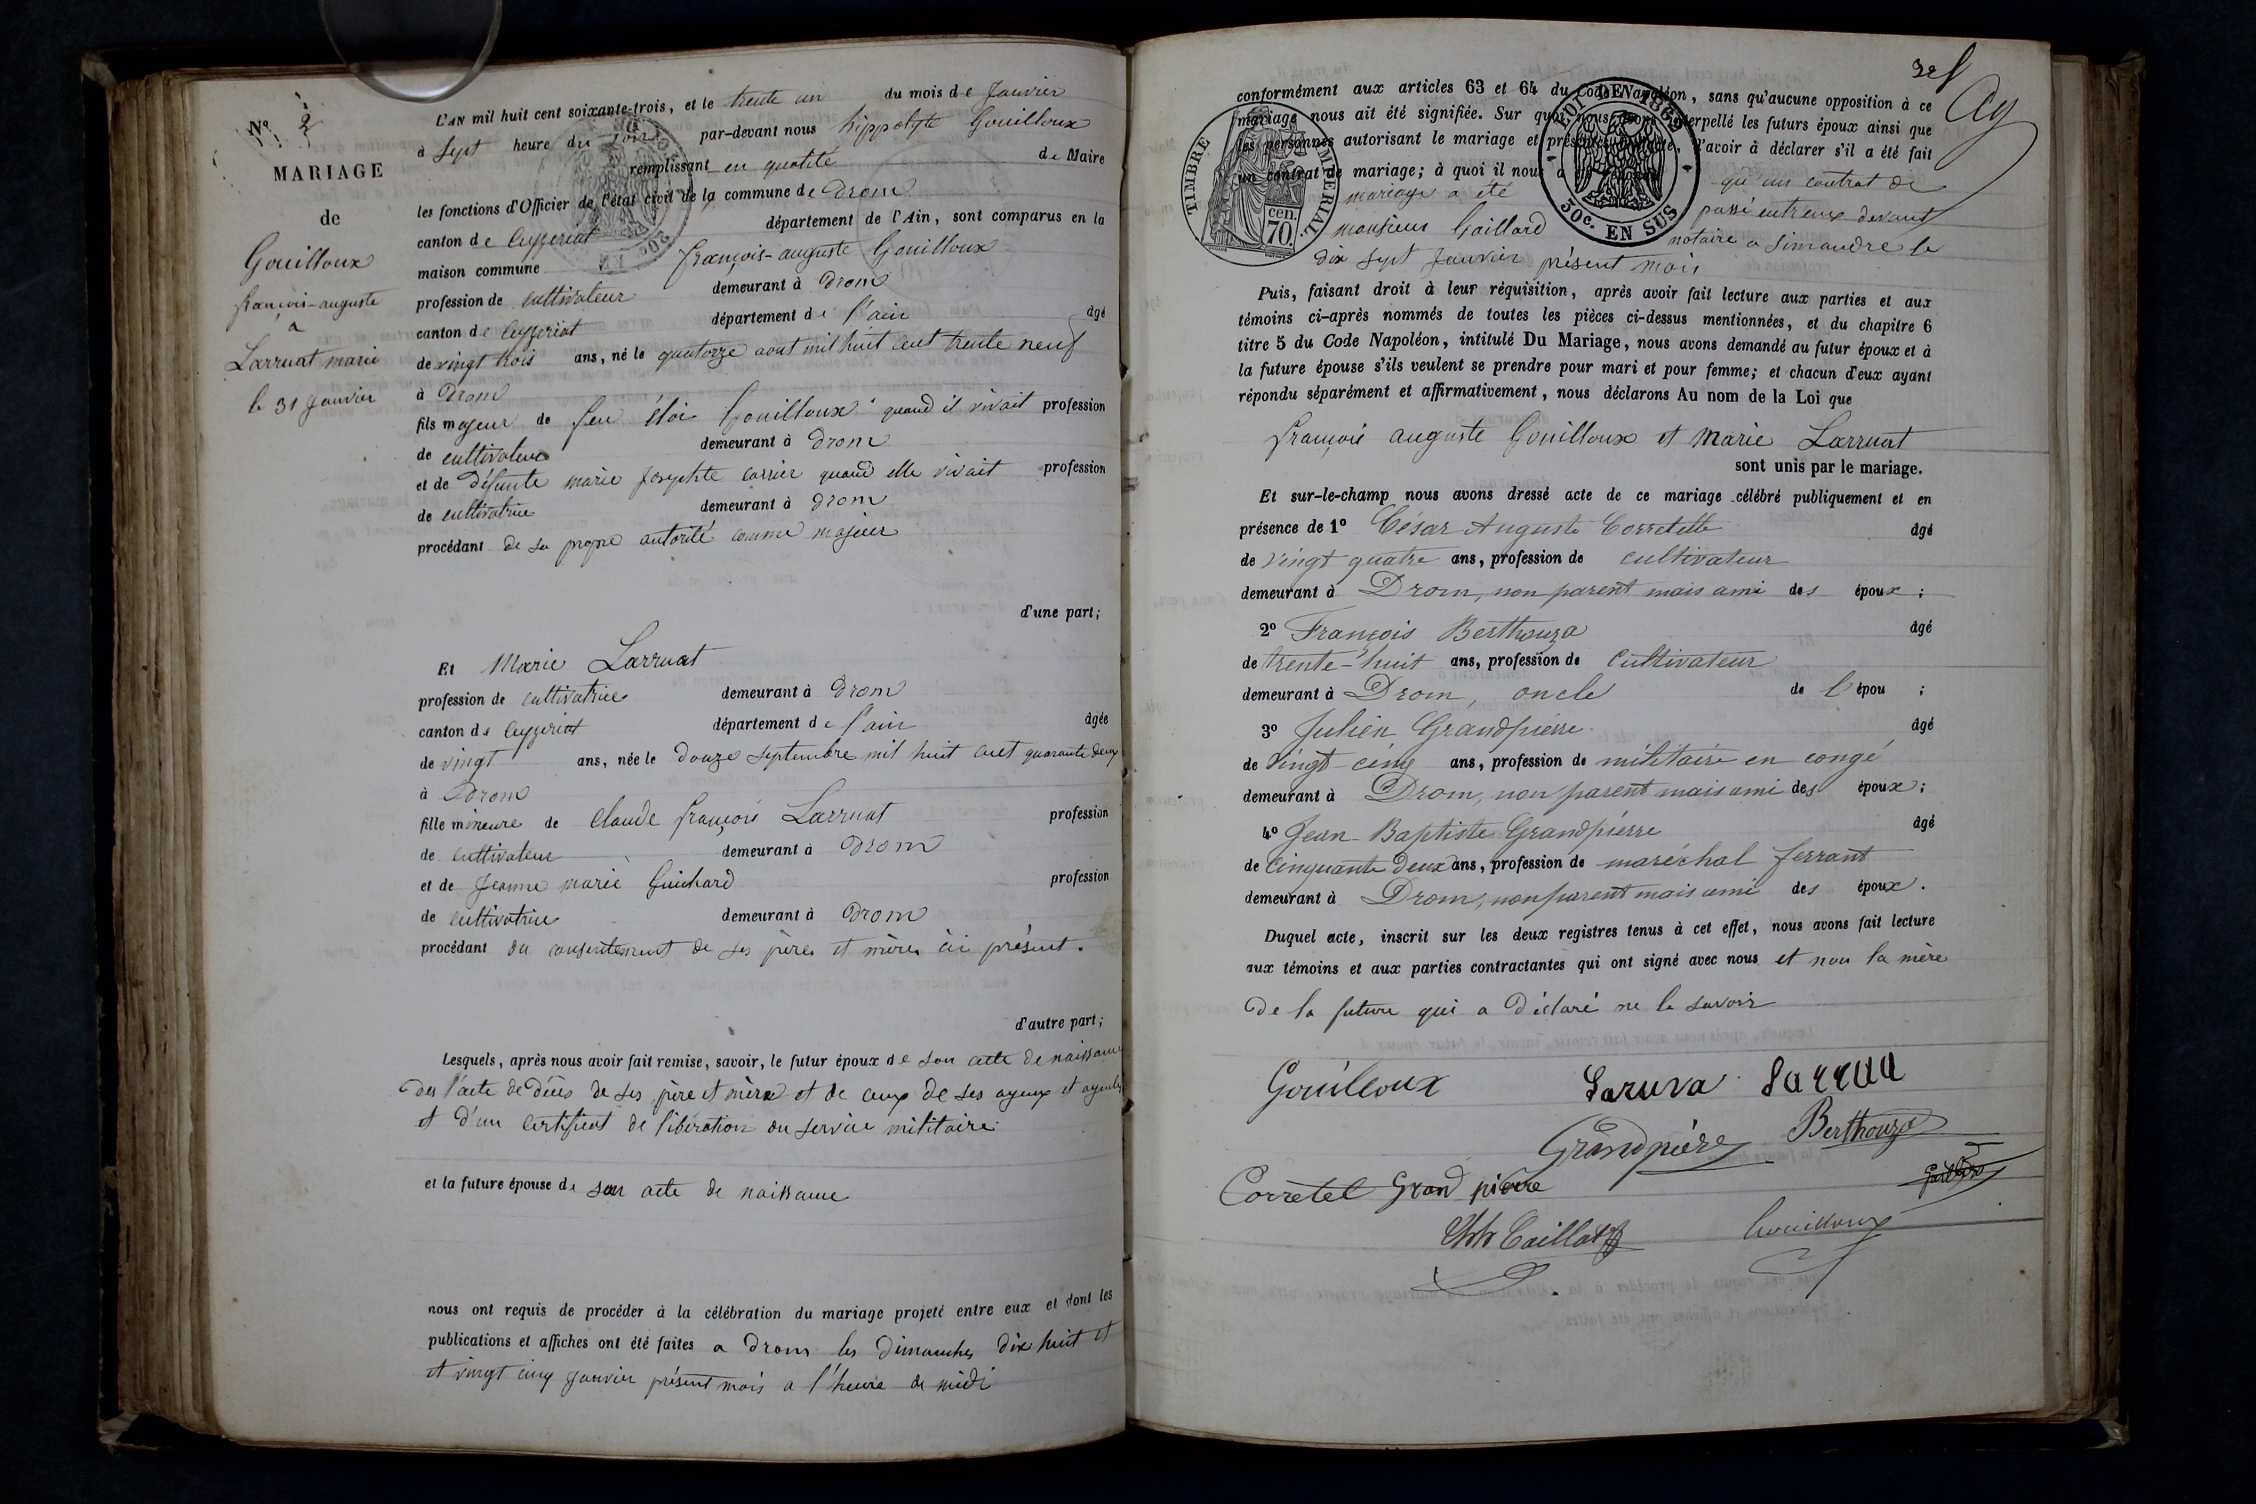 N° 2
MARIAGE
de
Gouilloux
françois-auguste
a
Larruat marie
le 31 Janvier
L'AN mil huit cent soixante-trois, et le trente un du mois de Janvier
à Sept heure du soir par-devant nous hippolyte Gouilloux
remplissant en qualité de Maire
les fonctions d'Officier de l'état civil de la commune de Drom
canton de Ceyzeriat département de l'Ain, sont comparus en la
maison commune françois-auguste Gouilloux
profession de cultivateur demeurant à Drom
canton de Ceyzeriat département de l'ain âgé
de vingt trois ans, né le quatorze aout mil huit cent trente neuf
à Drom
fils majeur de feu éloi Gouilloux quand il vivait profession
de cultivateur demeurant à Drom
et de Défunte marie Josephte carrier quand elle vivait profession
de cultivatrice demeurant à Drom
procédant de sa propre autorité comme majeur
d'une part;
Et Marie Larruat
profession de cultivatrice demeurant à Drom
canton de Ceyzeriat département de l'ain âgée
de vingt ans, née le douze septembre mil huit cent quarante deux
à Drom
fille mineure de Claude françois Larruat profession
de cultivateur demeurant à Drom
et de Jeanne marie Guichard profession
de cultivatrice demeurant à Drom
procédant du consentement de ses pères et mères ici présent.
d'autre part;
Lesquels, après nous avoir fait remise, savoir, le futur époux de son acte de naissance
des l'acte de Décès de ses père et mère et de ceux de ses ayeux et ayeules
et d'un certificat de libération du service militaire
et la future épouse de son acte de naissance
nous ont requis de procéder à la célébration du mariage projeté entre eux et dont les
publications et affiches ont été faites a Drom les Dimanches Dix huit et
et vingt cinq Janvier présent mois a l'heure de midi
32
conformément aux articles 63 et 64 du Code Napoléon, sans qu'aucune opposition à ce
mariage nous ait été signifiée. Sur quoi nous avons interpellé les futurs époux ainsi que
les personnes autorisant le mariage et présentes, d'avoir à déclarer s'il a été fait
un contrat de mariage; à quoi il nous a qu'un contrat de
mariage a été passé entreux devant
monsieur Gaillard notaire a Simandre le
dix sept Janvier présent mois
TIMBRE IMPERIAL
70 cen.
LOI DE 1862
50c. EN SUS
Puis, faisant droit à leur réquisition, après avoir fait lecture aux parties et aux
témoins ci-après nommés de toutes les pièces ci-dessus mentionnées, et du chapitre 6
titre 5 du Code Napoléon, intitulé Du Mariage, nous avons demandé au futur époux et à
la future épouse s'ils veulent se prendre pour mari et pour femme; et chacun d'eux ayant
répondu séparément et affirmativement, nous déclarons Au nom de la Loi que
françois auguste Gouilloux et Marie Larruat
sont unis par le mariage.
Et sur-le-champ nous avons dressé acte de ce mariage célébré publiquement et en
présence de 1° César Auguste Corretelle âgé
de vingt quatre ans, profession de cultivateur
demeurant à Drom, non parent mais ami des époux;
2° François Berthouza âgé
de trente-huit ans, profession de Cultivateur
demeurant à Drom, oncle de l'épou;
3° Julien Grandpierre âgé
de vingt-cinq ans, profession de militaire en congé
demeurant à Drom, non parent mais ami des époux;
4° Jean-Baptiste Grandpierre âgé
de Cinquante Deux ans, profession de maréchal ferrant
demeurant à Drom, non parent mais ami des époux.
Duquel acte, inscrit sur les deux registres tenus à cet effet, nous avons fait lecture
aux témoins et aux parties contractantes qui ont signé avec nous et non la mère
de la future qui a Déclaré ne le savoir
Gouilloux Laruva Larrua
Grandpière Berthouza
Corretel Grand pierre
Gouilloux